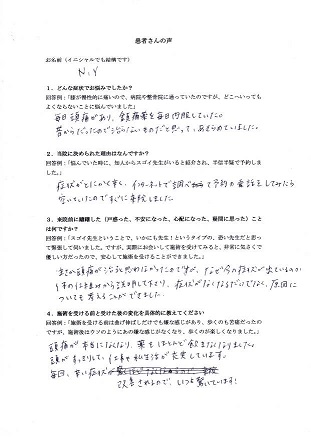 患者さんの声
お名前（イニシャルでも結構です）
N.Y
1．どんな症状でお悩みでしたか？
回答例：「膝が慢性的に痛いので、病院や整骨院に通っていたのですが、どこへいってもよくならないことに悩んでいました」
毎日頭痛があり、鎮痛薬を毎日内服していた。
昔からだったので治らないものだと思って、あきらめていました。
2．当院に決められた理由はなんですか？
回答例：「悩んでいた時に、知人からスゴイ先生がいると紹介され、半信半疑で予約しました」
症状がとにかく辛く、インターネットで調べ
予約の電話をしてみたら
空いていたのですぐに来院しました
3．来院前に躊躇した（戸惑った、不安になった、心配になった、疑問に思った）こと
は何ですか？
回答例：「スゴイ先生ということで、いかにも先生！というタイプの、恐い先生だと思っ
て緊張して伺いました。ですが、実際にお会いして施術を受けてみると、非常に気さくで
優しい方だったので、安心して施術を受けることができました」
まさか頭痛が治ると思わなかったのですが、なぜ今の症状が出ているのか
体の仕組みから説明して下さり、症状がなくなるだけでなく、原因に
ついても考えることができました。
4．施術を受ける前と受けた後の変化を具体的に教えてください
回答例：「施術を受ける前は曲げ伸ばしだけでも嫌な感じがあり、歩くのも苦痛だったの
ですが、施術後はウソのようにあの嫌な感じがなくなり、歩くのが楽しくなりました。」
頭痛が本当になくなり、薬をほとんど飲まなくなりました。
頭がすっきりして、仕事や私生活が充実しています。
毎回、辛い症状が
改善されるので、いつも驚いています！